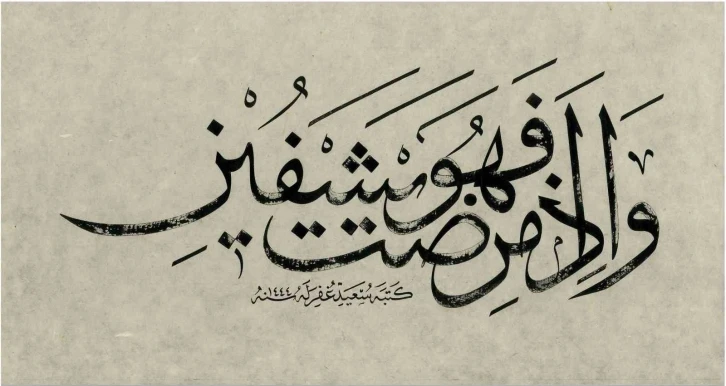 وَإِذَا مَرِضْتُ فَهُوَ يَشْفِينِ
كتبه سعيد غفر له سنة ١٤٤٤